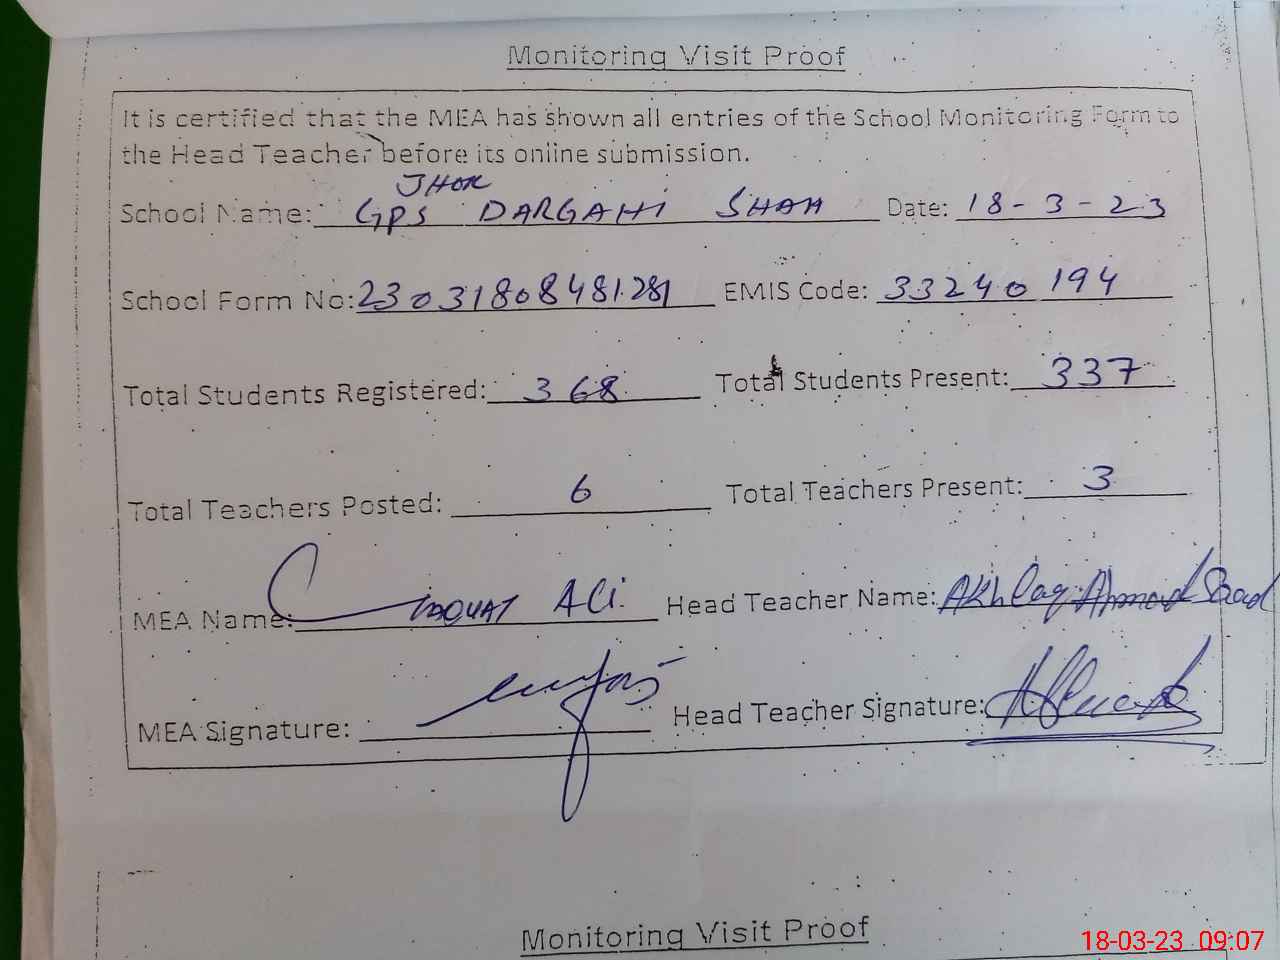 Monitoring Visit Proof
It is certified that the MEA has shown all entries of the School Monitoring Form to
the Head Teacher before its online submission.
JHOK
School Name: GPS DARGAHI SHAH Date: 18-3-23
School Form No: 23031808481281 EMIS Code: 33240194
Total Students Registered: 368 Total Students Present: 337
Total Teachers Posted: 6 Total Teachers Present: 3
MEA Name: Liaquat Ali Head Teacher Name: Akhlaq Ahmad
MEA Signature: Head Teacher Signature:
Monitoring Visit Proof
18-03-23 09:07